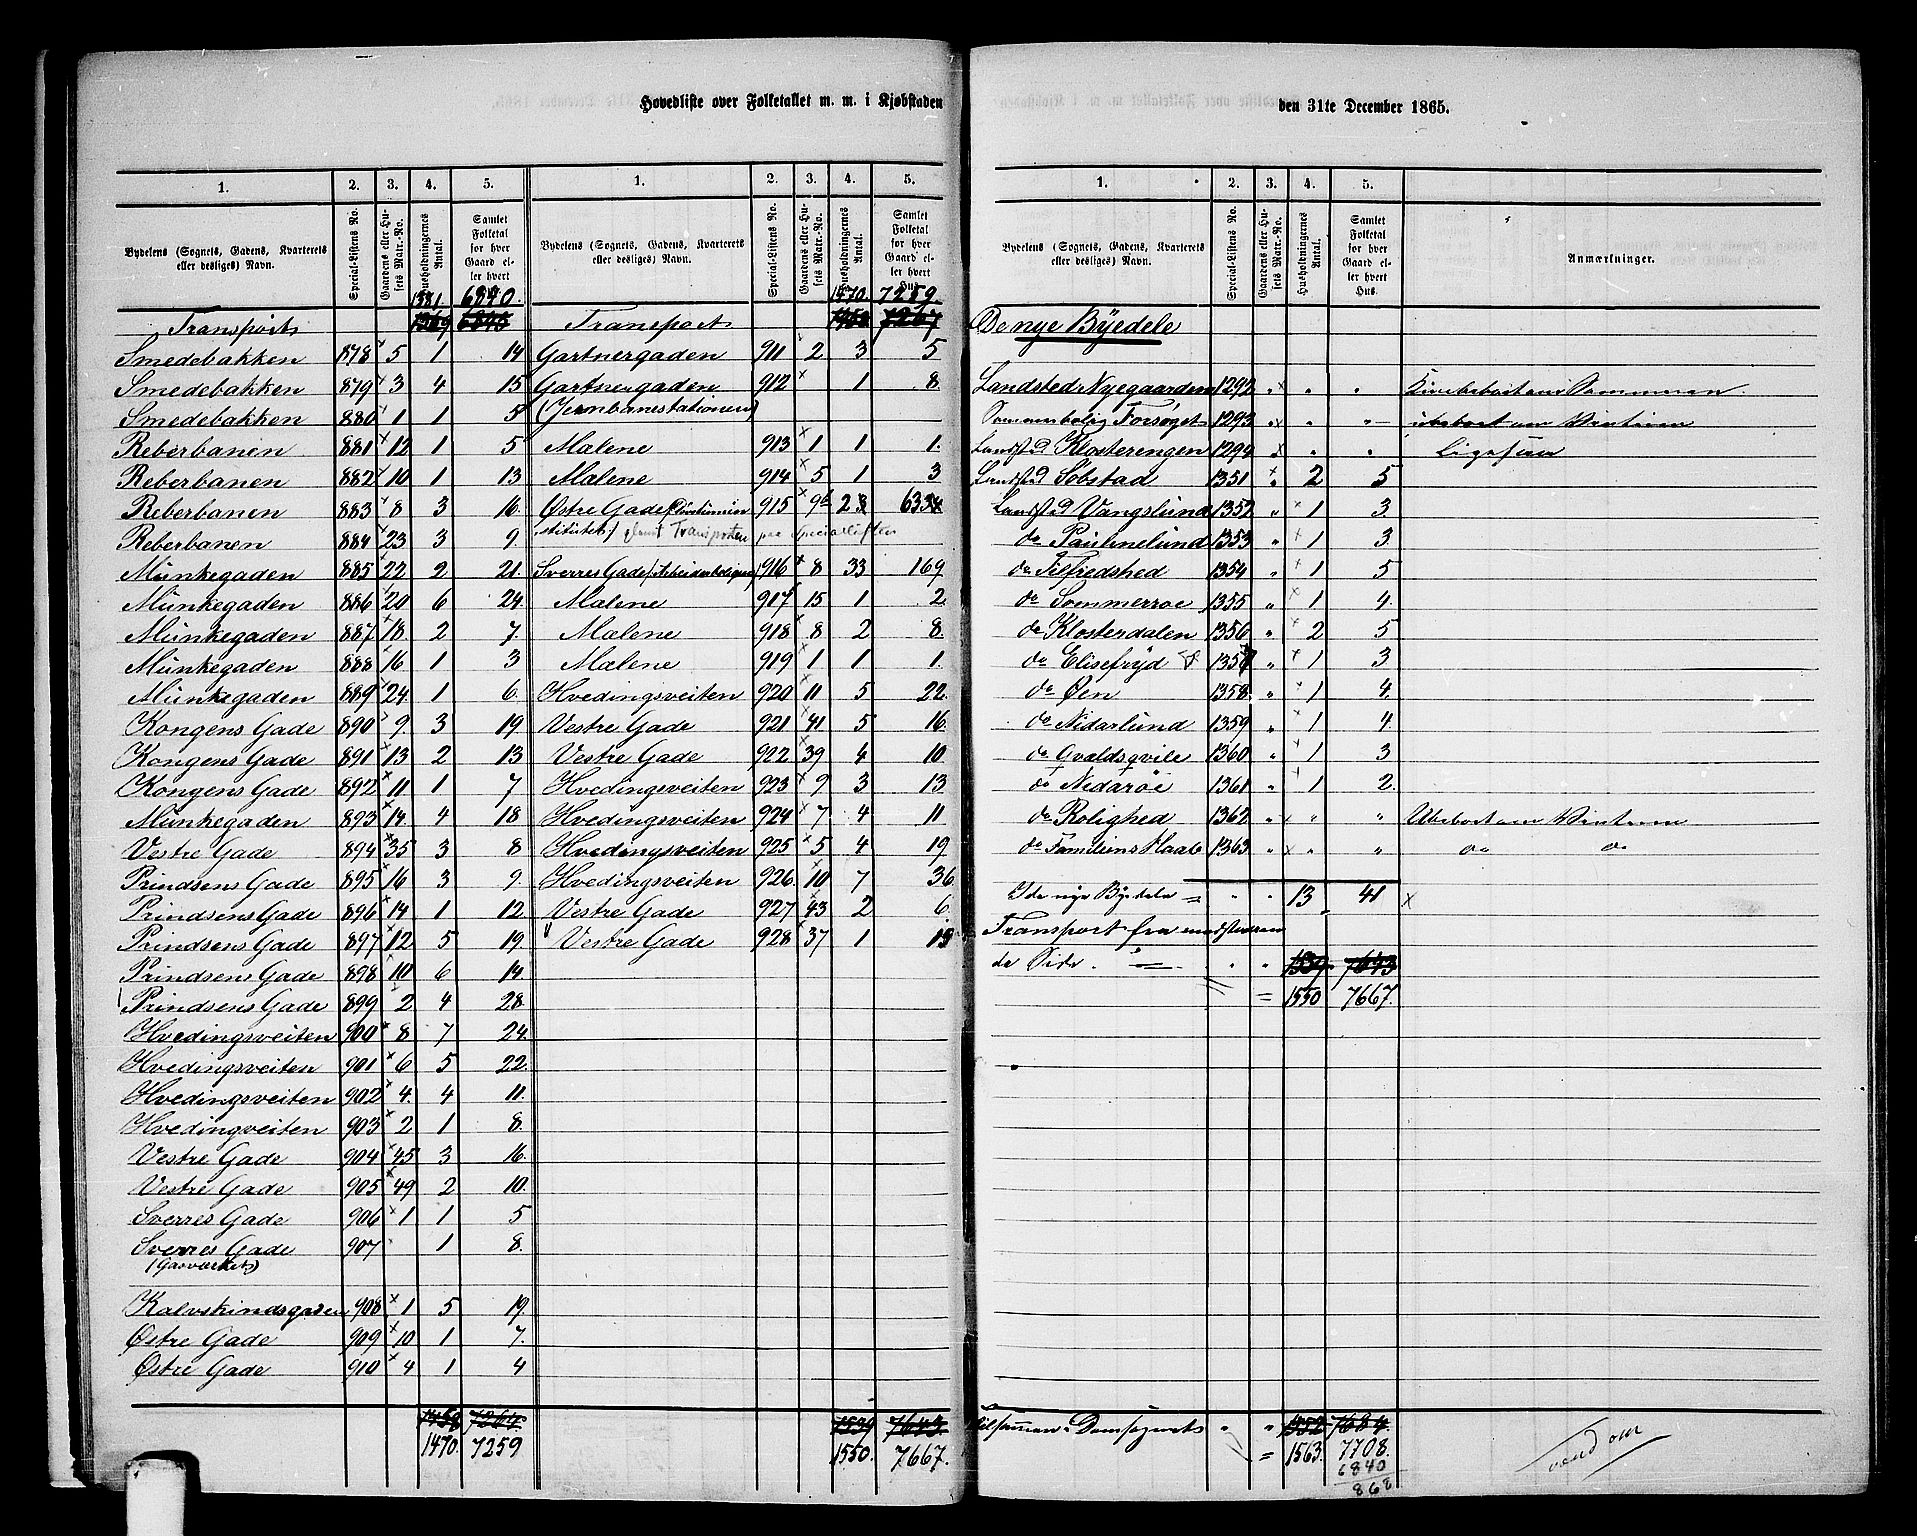 Hovedliste over Folketallet m. m. i Kjøbstaden
1. 2. 3. 4. 5. 1. 2. 3. 4. 5.
Bydelens (Sognets, Gadens, Kvarterets eller desliges) Navn. Special-Listens No. Gaardens eller Husets Matr.-No. Husholdningernes Antal. Samlet Folketal for hver Gaard eller hvert Hus. Bydelens (Sognets, Gadens, Kvarterets eller desliges) Navn. Special-Listens No. Gaardens eller Husets Matr.-No. Husholdningernes Antal. Samlet Folketal for hver Gaard eller hvert Hus.
1381. 6840. 1470. 7259.
Transport 1369 6845 Transport 1458 7267
Smedebakken 878 5 1 14 Gartnergaden 911 2 3 5
Smedebakken 879 3 4 15 Gartnergaden 912 1 8.
Smedebakken 880 1 1 5 (Jernbanestationen)
Reberbanen 881 12 1 5 Mælene 913 1 1 1.
Reberbanen 882 10 1 13 Mælene 914 5 1 3
Reberbanen 883 8 3 16. Østre Gade 915 9b
Reberbanen 884 23 3 9. Transporten paa Speciallisten
Munkegaden 885 22 2 21. Sverres Gade (Arbeiderboligerne) 916 8 33 169
Munkegaden 886 20 6 24. Mælene 917 15 1 2.
Munkegaden 887 18. 2 7. Mælene 918 8 2 8.
Munkegaden 888 16 1 3 Mælene 919 1 1 1.
Munkegaden 889 24 1 6. Hvedingsveiten 920 11 5 22.
Kongens Gade 890 9. 3 19. Vestre Gade 921 41 5 16.
Kongens Gade 891 13 2 13 Vestre Gade 922 39 4 10.
Kongens Gade 892 11 1 7 Hvedingsveiten 923 9 3 13.
Munkegaden 893 14. 4 18 Hvedingsveiten 924 7 4 11
Vestre Gade 894 35 3 8 Hvedingsveiten 925 5 4 19
Prindsens Gade 895 16 3 9. Hvedingsveiten 926. 10 7 36
Prindsens Gade 896 14 1 12 Vestre Gade 927 43 2 6.
Prindsens Gade 897 12 5 19. Vestre Gade 928 37 1
Prindsens Gade 898 10 6 14
Prindsens Gade 899 2 4 28.
Hvedingsveiten 900 8 7 24.
Hvedingsveiten 901 6 5 22.
Hvedingsveiten 902 4. 4 11.
Hvedingveiten 903 2 1 8.
Vestre Gade 904 45 3 16.
Vestre Gade 905 49 2 10.
Sverres Gade 906 1 1 5
Sverres Gade 907 1 8.
(Gasværket)
Kalvskindsgaden 908 1 5 19.
Østre Gade 909 10 1 7.
Østre Gade 910 4 1 4
1458 7264. 1539 7643.
1470. 7259 1550. 7667.
den 31te December 1865.
1. 2. 3. 4. 5.
Bydelens (Sognets, Gadens, Kvarterets eller desliges) Navn. Special-Listens No. Gaardens eller Husets Matr.-No. Husholdningernes Antal. Samlet Folketal for hver Gaard eller hvert Hus. Anmærkninger.
De nye Byedele
Landsted Nyegaarden 1292 " " "
Sommerbolig Forsøget 1293 " " " ubeboet om Vinteren
Landsted Klosterengen 1294 " " ligesaa
Landsted Søbstad 1351 " 2 5
Landsted Vangslund 1352 " 1 3
do Paulinelund 1353 " 1 3.
do Tilfredshed 1354 " 1 5
do Sommerroe 1355 " 1 4.
do Klosterdalen 1356 " 2 5
do Elisefryd 1357 " 1 3
do Øen 1358. " 1 4.
do Nidarlund 1359 " 1 4.
do Qvældsqvile 1360 " 1 3
do Nidarøe 1361 " 1 2.
do Rolighed 1362 " " " Ubeboet om Vinteren
do Familiens Haab 1363 " " " do do
I de nye Byedele = " " 13 41
Transport fra modstaaende Side. " " 1539 7643
= 1550 7667.
Tilsammen i Domsognet " " 1552 7684.
= 1563. 7708.
6840
868
vend om